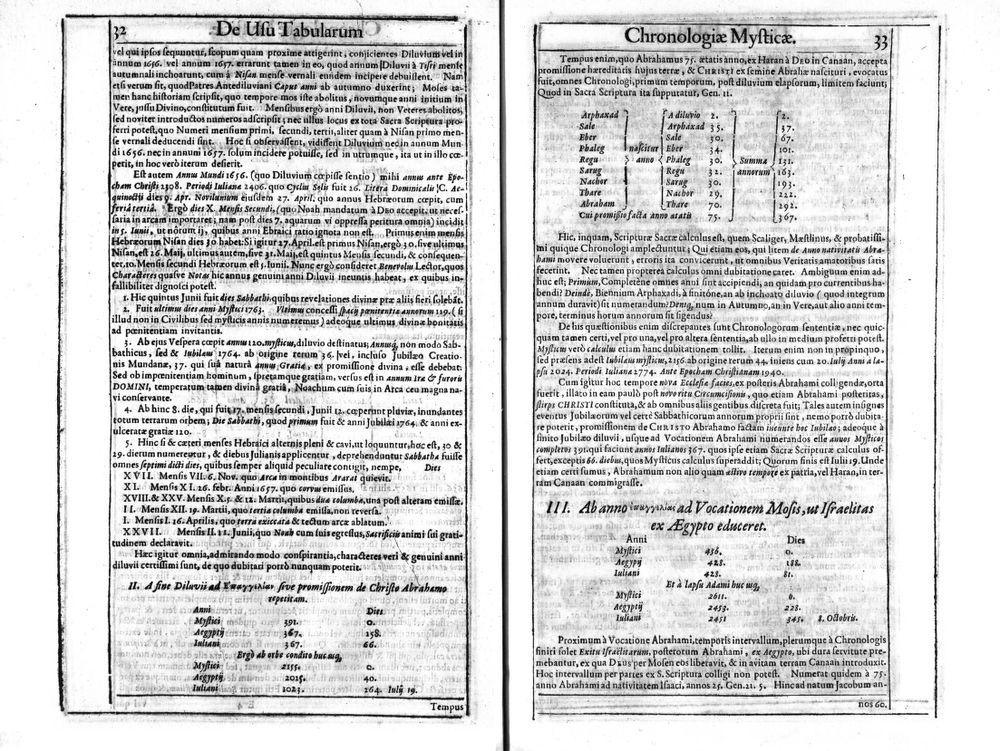 32 De Usu Tabularum
vel qui ipsos sequuntur, scopum quam proxime attigerint, conjicientes Diluvium vel in
annum 1656. vel annum 1657. errarunt tamen in eo, quod annum Diluvii à Tisri mense
autumnali inchoarunt, cum à Nisan mense vernali eundem incipere debuissent. Nam
etsi verum sit, quod Patres Antediluviani Caput anni ab autumno duxerint; Moses ta-
men hanc historiam scripsit, quo tempore mos iste abolitus, novumque anni initium in
Vere, jussu Divino, constitutum fuit. Mensibus ergò anni Diluvii, non Veteres abolitos,
sed noviter introductos numeros adscripsit; nec ullus locus ex tota Sacra Scriptura pro-
ferri potest, quo Numeri mensium primi, secundi, tertii, aliter quam à Nisan primo men-
se vernali deducendi sint. Hoc si observassent, vidissent Diluvium nec in annum Mun-
di 1656. nec in annum 1657. solum incidere potuisse, sed in utrumque, ita ut in illo cœ-
perit, in hoc verò iterum desierit.
Est autem Annus Mundi 1656. (quo Diluvium cœpisse sentio) mihi annus ante Epo-
cham Christi 2308. Periodi Iulianæ 2406. quo Cyclus Solis fuit 26. Litera Dominicalis C. Æ-
quinoctii dies 9. Apr. Novilunium ejusdem 27. April. quo annus Hebræorum cœpit, cum
feria tertiâ. Ergò dies X. Mensis Secundi, (quo Noah mandatum à Deo accepit, ut neces-
saria in arcam importaret; nam post dies 7. aquarum vi oppressa peritura omnia) incidit
in 5. Iunii, ut nôrunt ij, quibus anni Ebraici ratio ignota non est. Primus enim mensis
Hebræorum Nisan dies 30 habet: Si igitur 27. April. est primus Nisan, ergò 30. sive ultimus
Nisan, est 26. Maij, ultimus autem, sive 31. Maij, est quintus Mensis secundi, & consequen-
ter, 10. Mensis secundi Hebræorum est 5. Iunii. Nunc ergò consideret Benevolus Lector, quos
Characteres quasve Notas hic annus genuini anni Diluvii ineuntis habeat, ex quibus in-
fallibiliter dignosci potest.
1. Hic quintus Junii fuit dies Sabbathi, quibus revelationes divinæ præ aliis fieri solebãt.
2. Fuit ultimus dies anni Mystici 1763. Ultimus concessi spacij pœnitentiæ annorum 119. (si
illud non in Civilibus sed mysticis annis numeremus) adeoque ultimus divinæ bonitatis
ad pœnitentiam invitantis.
3. Ab ejus Vespera cœpit annus 120. mysticus, diluvio destinatus; Annusq, non modo Sab-
bathicus, sed & Iubilæus 1764. ab origine rerum 36. vel, incluso Jubilæo Creatio-
nis Mundanæ, 37. qui suâ naturâ annus Gratiæ, ex promissione divina, esse debebat:
Sed ob impœnitentiam hominum, spretamque gratiam, versus est in annum Iræ & furoris
DOMINI, temperatum tamen divinâ gratiâ, Noachum cum suis in Arca ceu magna na-
vi conservante.
4. Ab hinc 8. die, qui fuit 17. mensis secundi, Junii 12. cœperunt pluviæ, inundantes
totum terrarum orbem; Die Sabbathi, quod primum fuit & anni Jubilæi 1764. & anni ex-
ulceratæ gratiæ 120.
5. Hinc si & cæteri menses Hebraici alternis pleni & cavi, ut loquuntur, hoc est, 30 &
29. dierum numerentur, & diebus Julianis applicentur, deprehenduntur Sabbatha fuisse
omnes septimi dicti dies, quibus semper aliquid peculiare contigit, nempe, Dies
XVII. Mensis VII. 6. Nov. quo Arca in montibus Ararat quievit.
XI. Mensis XI. 26. febr. Anni 1657. quo corvus emissus.
XVIII. & XXV. Mensis X. 5. & 12. Martii, quibus duæ columbæ, una post alteram emissæ.
II. Mensis XII. 19. Martii, quo tertia columba emissa, non reversa.
I. Mensis I. 16. Aprilis, quo terra exiccata & tectum arcæ ablatum.
XXVII. Mensis II. 11. Junii, quo Noah cum suis egressus, Sacrificiis animi sui grati-
tudinem declaravit.
Hæc igitur omnia, admirando modo conspirantia, characteres veri & genuini anni
diluvii certissimi sunt, de quo dubitari porrò nunquam poterit.
II. A fine Diluvii ad Επαγγελίαν sive promissionem de Christo Abrahamo
repetitam.
Anni Dies
Mystici 391. 0.
Aegyptij 367. 158.
Iuliani 367. 66.
Ergò ab orbe condito huc usq,
Mystici 2155. 0.
Aegyptij 2025. 40.
Iuliani 2023. 264. Iulij 19.
Tempus
Chronologiæ Mysticæ. 33
Tempus enim, quo Abrahamus 75. ætatis anno, ex Haran à DEO in Canaan, accepta
promissione hæreditatis hujus terræ, & CHRISTI ex semine Abrahæ nascituri, evocatus
fuit, omnes Chronologi, primum temporum, post diluvium elapsorum, limitem faciunt;
Quod in Sacra Scriptura ita supputatur, Gen. 11.
Arphaxad A diluvio 2. 2.
Sale Arphaxad 35. 37.
Eber Sale 30. 67.
Phaleg nascitur Eber 34. 101.
Regu anno Phaleg 30. Summa 131.
Sarug Regu 32. annorum 163.
Nachor Sarug 30. 193.
Thare Nachor 29. 222.
Abraham Thare 70. 292.
Cui promissio facta anno ætatis 75. 367.
Hic, inquam, Scripturæ Sacræ calculus est, quem Scaliger, Mæstlinus, & probatissi-
mi quique Chronologi amplectuntur; Qui etiam eos, qui litem de Anno nativitatis Abra-
hami movere voluerunt, erroris ita convicerunt, ut omnibus Veritatis amatoribus satis
fecerint. Nec tamen propterea calculus omni dubitatione caret. Ambiguum enim ad-
huc est; Primùm, Completéne omnes anni sint accipiendi, an quidam pro currentibus ha-
bendi? Deinde, Biennium Arphaxadi, à finitóne, an ab inchoato diluvio (quod integrum
annum duravit) sit numerandum? Deniq, num in Autumno, an in Vere, aut alio anni tem-
pore, terminus horum annorum sit figendus?
De his quæstionibus enim discrepantes sunt Chronologorum sententiæ, nec quic-
quam tamen certi, vel pro una, vel pro altera sententia, ab ullo in medium proferri potest.
Mysticus verò calculus etiam hanc dubitationem tollit. Iterum enim non in propinquo,
sed præsens adest Iubilæus mysticus, 2156. ab origine rerum 44. iniens cum 20. Iulij Anni à la-
psu 2024. Periodi Iulianæ 2774. Ante Epocham Christianam 1940.
Cum igitur hoc tempore nova Ecclesiæ facies, ex posteris Abrahami colligendæ, orta
fuerit, illato in eam paulò post novoritu Circumcisionis, quo etiam Abrahami posteritas,
stirps CHRISTI constituta, & ab omnibus aliis gentibus discreta fuit; Tales autem insignes
eventus Jubilæorum vel certè Sabbathicorum annorum proprii sint, nemo porrò dubita-
re poterit, promissionem de CHRISTO Abrahamo factam ineunte hoc Iubilæo; adeoque à
finito Jubilæo diluvii, usque ad Vocationem Abrahami numerandos esse annos Mysticos
completos 391. qui faciunt annos Iulianos 367. quos ipse etiam Sacræ Scripturæ calculus of-
fert, exceptis 66. diebus, quos Mysticus calculus superaddit; Quorum finis est Iulii 19. Unde
etiam certi sumus, Abrahamum non alio quam æstivo tempore ex patria, vel Haran, in ter-
ram Canaan commigrasse.
III. Ab anno ἐπαγγελίας ad Vocationem Mosis, ut Israelitas
ex Ægypto educeret.
Anni Dies
Mystici 456. 0.
Aegyptij 428. 188.
Iuliani 428. 81.
Et à lapsu Adami huc usq,
Mystici 2611. 0.
Aegyptij 2453. 228.
Iuliani 2451 345. 8. Octobris.
Proximum à Vocatione Abrahami, temporis intervallum, plerumque à Chronologis
finiri solet Exitu Israëlitarum, posterorum Abrahami, ex Aegypto, ubi dura servitute pre-
mebantur, ex qua DEUS per Mosen eos liberavit, & in avitam terram Canaan introduxit.
Hoc intervallum per partes ex S. Scriptura colligi non potest. Numerat quidem à 75.
anno Abrahami ad nativitatem Isaaci, annos 25. Gen. 21. 5. Hinc ad natum Jacobum an-
nos 60.